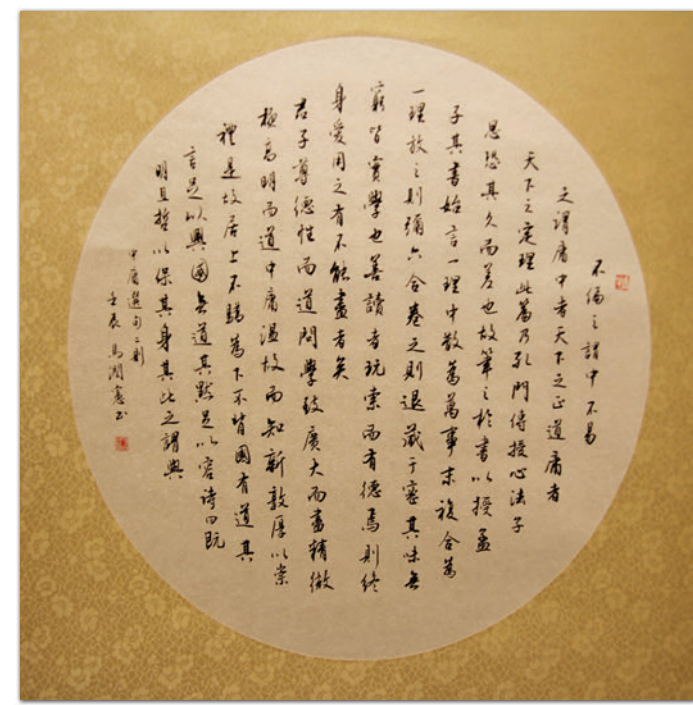 不偏之謂中不易
之謂庸中者天下之正道庸者
天下之定理此篇乃孔門傳授心法子
思恐其久而差也故筆之於書以授孟
子其書始言一理中散為萬事末複合為
一理放之則彌六合卷之則退藏于密其味無
窮皆實學也善讀者玩索而有德焉則終
身愛用之有不能盡者矣
君子尊德性而道問學致廣大而盡精微
極高明而道中庸溫故而知新敦厚以崇
禮是故居上不驕為下不背國有道其
言足以興國無道其默足以容诗曰既
明且哲以保其身其此之謂與
中庸選句二則
壬辰馬潤憲书